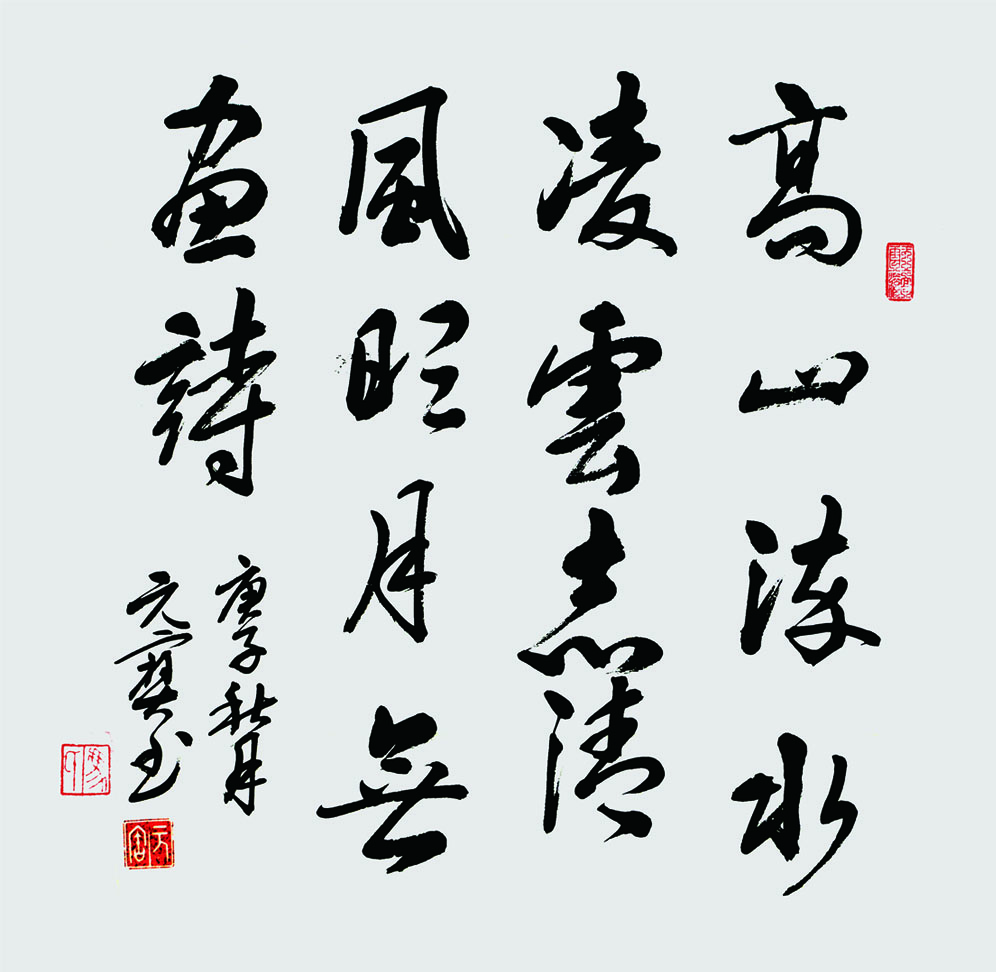 高山流水
凌雲志清
風明月無
畫詩
庚子秋月
元寶書